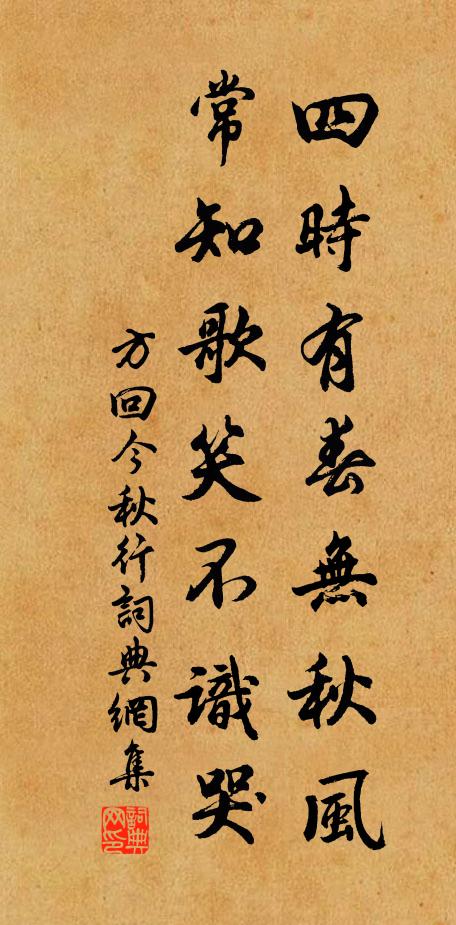 四時有春無秋風
常知歌笑不識哭
方回今秋行詞典網集
詞典网印